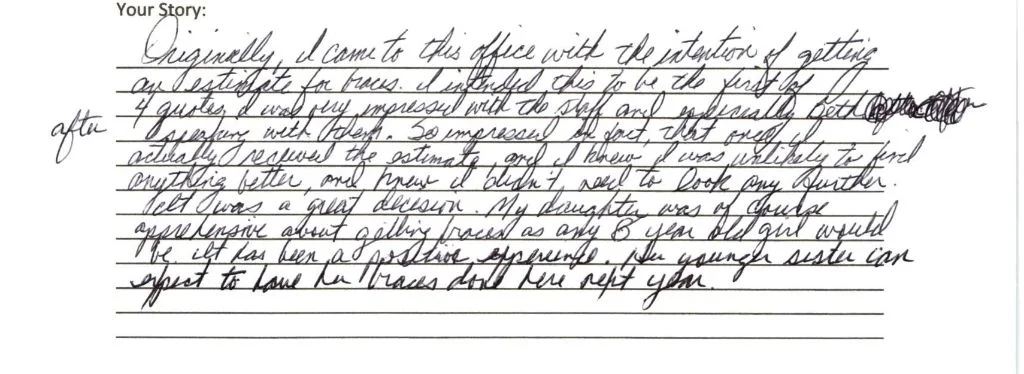 Your Story:
Originally, I came to this office with the intention of getting
an estimate for braces. I intended this to be the first of
4 quotes, I was very impressed with the staff and especially Beth
after speaking with them. So impressed in fact, that once I
actually received the estimate, and I knew I was unlikely to find
anything better, and knew I didn't need to look any further.
It was a great decision. My daughter was of course
apprehensive about getting braces as any 8 year old girl would
be. It has been a positive experience. Her younger sister can
expect to have her braces done here next year.